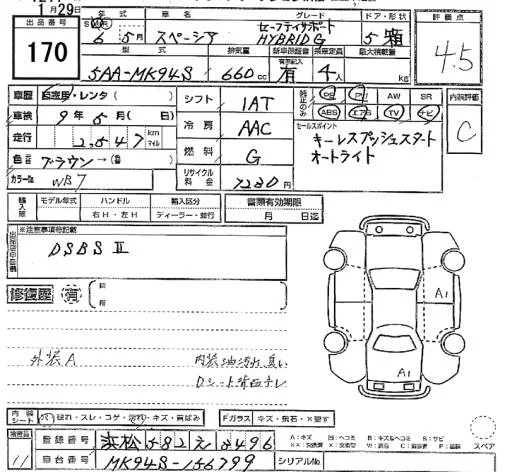 1月29日
出品番号
170
年式
6年5月
車名
スペーシア
グレード
セーフティサポート
HYBRID G
ドア・形状
5 箱
評価点
4.5
型式
5AA-MK94S
排気量
660cc
新車保証書
有
乗車定員
4人
最大積載量
kg
車歴
自家用・レンタ( )
シフト
1AT
純正のみ
PS PW AW SR
ABS エアB TV ナビ
内装評価
C
車検
9年5月( 日)
冷房
AAC
セールスポイント
キーレスプッシュスタート
オートライト
走行
2,547 km マイル
燃料
G
色
ブラウン→(色 )
カラーNo
WB7
リサイクル料金
7280円
輸入車
モデル年式
ハンドル
右H・左H
輸入区分
ディーラー・並行
書類有効期限
月 日迄
※注意事項特記載
DSBS II
修復歴
有
外装A
内装油汚れ臭い
Dシート背面キレ
A1
A1
内装シート
破れ・スレ・コゲ・汚れ・キズ・黄ばみ
Fガラス
キズ・飛石・×要す
検査員
11
登録番号
浜松582え8496
A:キズ
U:凹ヘコミ
B:キズ&ヘコミ
S:サビ
スペア
車台番号
MK94S-156799
シリアルNo.